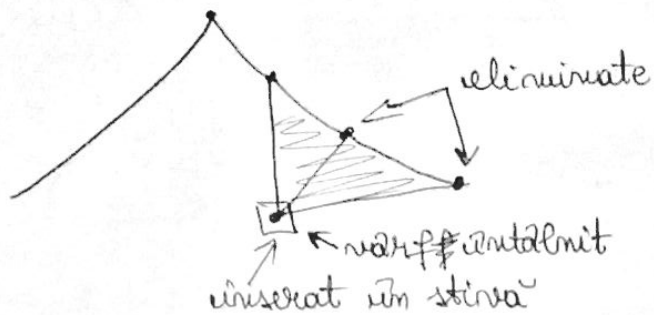 eliminate
vârf întâlnit
inserat în stivă